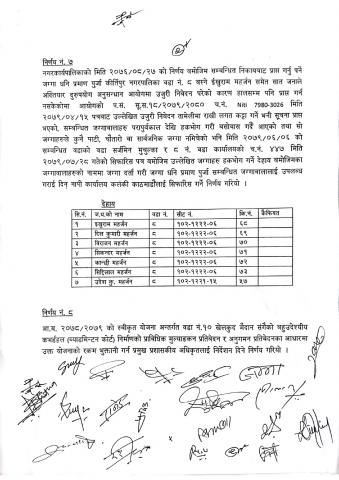 निर्णय नं. ७
नगरकार्यपालिकाको मिति २०७६/०८/२७ को निर्णय बमोजिम सम्बन्धित निकायबाट प्राप्त गर्नु पर्ने
जग्गा धनि प्रमाण पुर्जा कीर्तिपुर नगरपालिका वडा नं. ८ बस्ने ईश्वुराम महर्जन समेत सात जनाले
अख्तियार दुरुपयोग अनुसन्धान आयोगमा उजुरी निवेदन परेको कारण हालसम्म पनि प्राप्त गर्न
नसकेकोमा आयोगकी प.स. सु.स.१८/२०७९/२०८० च.नं. Niti 7980-3026 मिति
२०७९/०४/१५ पत्रबाट उल्लेखित उजुरी निवेदन तामेलीमा राखी लगत कट्टा गर्ने भनी सूचना प्राप्त
भएको, सम्बन्धित जग्गावालाहरु परापुर्वकाल देखि हकभोग गरी बसोबास गर्दै आएको तथा सो
जग्गाहरु कुनै पाटी, पौवारो वा सार्वजनिक जग्गा नमिचेको भनि मिति २०७९/०६/०६ को
सम्बन्धित वडाको वडा सर्जमिन मुचुल्का र ८ नं. वडा कार्यालयको च.नं. ४४७ मिति
२०७९/०७/२८ गतेको सिफारिस पत्र बमोजिम उल्लेखित जग्गाहरु हकभोग गर्ने देहाय बमोजिमका
जग्गावालाहरुको नाममा जग्गा दर्ता गरी जग्गा धनि प्रमाण पुर्जा सम्बन्धित जग्गावालालाई उपलब्ध
गराई दिन नापी कार्यालय कलंकी काठमाडौंलाई सिफारिस गर्ने निर्णय गरियो ।
देहाय
सि.नं. ज.ध.को नाम वडा नं. सीट नं. कि.नं. कैफियत
१ ईश्वुराम महर्जन ८ १०२-१२२२-०६ ६८
२ दिल कुमारी महर्जन ८ १०२-१२२२-०६ ६९
३ विराजन महर्जन ८ १०२-१२२२-०६ ७०
४ सिकन्दर महर्जन ८ १०२-१२२२-०६ ७१
५ कान्छी महर्जन ८ १०२-१२२२-०६ ७२
६ सिद्दिलाल महर्जन ८ १०२-१२२२-०६ ७३
७ उमेश कु. महर्जन ८ १०२-१२२१-१५ ५७
निर्णय नं. ८
आ.व. २०७८/२०७९ को स्वीकृत योजना अन्तर्गत वडा नं.१० खेलकुद मैदान संगैको बहुउदेश्यीय
कभर्डहल (व्याडमिन्टन कोर्ट) निर्माणको प्राबिधिक मुल्याङकन प्रतिवेदन र अनुगमन प्रतिवेदनका आधारमा
उक्त योजनाको रकम भुक्तानी गर्न प्रमुख प्रशासकीय अधिकृतलाई निर्देशन दिने निर्णय गरियो ।